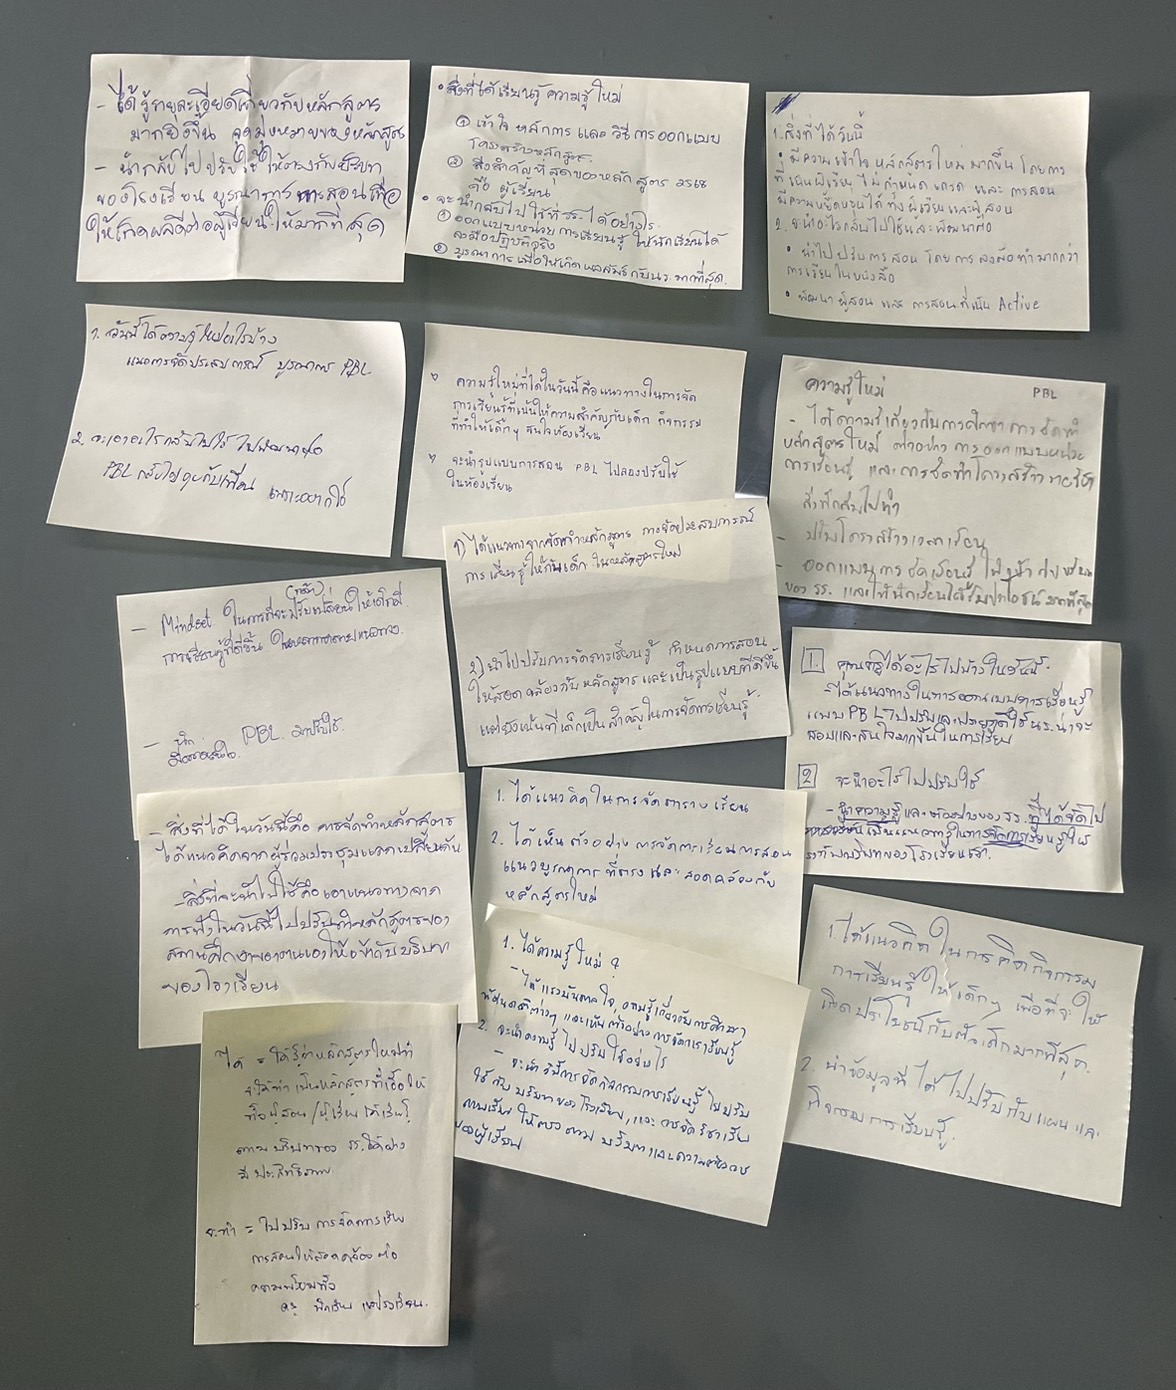 - ได้รู้รายละเอียดเกี่ยวกับหลักสูตร
มากยิ่งขึ้น จุดมุ่งหมายของหลักสูตร
- นำกลับไปปรับใช้ ให้ตรงกับบริบท
ของโรงเรียน บูรณาการการสอนเพื่อ
ให้เกิดผลดีต่อผู้เรียนให้มากที่สุด
• สิ่งที่ได้เรียนรู้ ความรู้ใหม่
① เข้าใจ หลักการ และ วิธีการออกแบบ
โครงสร้างหลักสูตร
② สิ่งสำคัญที่สุดของหลักสูตร 2568
คือ ผู้เรียน
• จะนำกลับไปใช้ที่ รร. ได้อย่างไร
① ออกแบบหน่วยการเรียนรู้ ให้นักเรียนได้
ลงมือปฏิบัติจริง
② บูรณาการเพื่อให้เกิดผลสัมฤทธิ์กับ นร. มากที่สุด.
1. สิ่งที่ได้วันนี้
• มีความเข้าใจ หลักสูตรใหม่ มากขึ้น โดยการ
ที่เน้นผู้เรียน ไม่กำหนด เกรด และ การสอน
มีความยืดหยุ่นได้ ทั้งผู้เรียนและผู้สอน
2. จะนำอะไรกลับไปใช้และพัฒนาต่อ
• นำไปปรับการสอน โดยการลงมือทำมากกว่า
การเรียนในหนังสือ
• พัฒนา ผู้สอน และ การสอนที่เน้น Active
1. วันนี้ได้ความรู้ใหม่อะไรบ้าง
แนวการจัดประสบการณ์ บูรณาการ PBL
2. จะเอาอะไรกลับไปใช้ ไปพัฒนาต่อ
PBL กลับไปคุยกับเพื่อน เพราะอยากใช้
ความรู้ใหม่ที่ได้ในวันนี้ คือแนวทางในการจัด
การเรียนรู้ที่เน้นให้ความสำคัญกับเด็ก กิจกรรม
ที่ทำให้เด็กๆ สนใจห้องเรียน
จะนำรูปแบบการสอน PBL ไปลองปรับใช้
ในห้องเรียน
ความรู้ใหม่ PBL
- ได้ความรู้เกี่ยวกับการศึกษา การจัดทำ
หลักสูตรใหม่ ตัวอย่าง การออกแบบหน่วย
การเรียนรู้ และการจัดทำโครงสร้างรายวิชา
สิ่งที่กลับไปทำ
- ปรับโครงสร้างเวลาเรียน
- ออกแบบการจัดเรียนรู้ ให้เข้ากับบริบท
ของ รร. และให้นักเรียนได้รับประโยชน์มากที่สุด
1) ได้แนวทางการจัดทำหลักสูตร การจัดประสบการณ์
การเรียนรู้ให้กับเด็ก ในหลักสูตรใหม่
2) นำไปปรับการจัดการเรียนรู้ กำหนดการสอน
ให้สอดคล้องกับหลักสูตร และเป็นรูปแบบที่ดีขึ้น
แต่ยังเน้นที่เด็กเป็นสำคัญในการจัดการเรียนรู้
(กล้า)
- Mindset ในการที่จะปรับเปลี่ยนให้เด็กมี
การเรียนรู้ที่ดีขึ้น
- PBL มาปรับใช้.
1. คุณครูได้อะไรไปบ้างในวันนี้
- ได้แนวทางในการออกแบบการเรียนรู้
แบบ PBL ไปปรับและประยุกต์ใช้ นร. น่าจะ
สอบและสนใจมากขึ้นในการเรียน
2 จะนำอะไรไปปรับใช้
- นำความรู้และตัวอย่างของ รร. ที่ได้จัดไป
เป็นแนวความรู้ในการจัดการเรียนรู้ให้
ตรงกับบริบทของโรงเรียนเรา.
- สิ่งที่ได้ในวันนี้คือ การจัดทำหลักสูตร
ได้แนวคิดจากผู้ร่วมประชุมแลกเปลี่ยนกัน
- สิ่งที่จะนำไปใช้คือเอาแนวทางจาก
การทำในวันนี้ไปปรับทำหลักสูตรของ
สถานศึกษาของตนเองให้เข้ากับบริบท
ของโรงเรียน
1. ได้แนวคิดในการจัดตารางเรียน
2. ได้เห็นตัวอย่างการจัดการเรียนการสอน
แนวบูรณาการที่ตรงและสอดคล้องกับ
หลักสูตรใหม่
1. ได้ความรู้ใหม่ ?
- ได้แรงบันดาลใจ, ความรู้เกี่ยวกับการศึกษา
ทัศนคติต่างๆ และเห็นตัวอย่างการจัดการเรียนรู้
2. จะนำความรู้ไปปรับใช้อย่างไร
- จะนำวิธีการจัดกิจกรรมการเรียนรู้ ไปปรับ
ใช้กับบริบทของโรงเรียน, และการจัดวิชาเรียน
ให้ตรงตามบริบทและความต้องการ
ของผู้เรียน
1. ได้แนวคิดในการคิดกิจกรรม
การเรียนรู้ให้เด็กๆ เพื่อที่จะให้
เกิดประโยชน์กับตัวเด็กมากที่สุด.
2. นำข้อมูลที่ได้ไปปรับกับแผนและ
กิจกรรมการเรียนรู้.
ได้ = ได้รู้ว่าหลักสูตรใหม่ที่
จะให้ทำ เป็นหลักสูตรที่เอื้อให้
ทั้งผู้สอน / ผู้เรียน ได้เรียนรู้
ตามบริบทของ รร. ได้อย่าง
มีประสิทธิภาพ
จะทำ = ไปปรับการจัดการเรียน
การสอนให้สอดคล้องต่อ
ความพร้อมทั้ง
ครู นักเรียน และโรงเรียน.